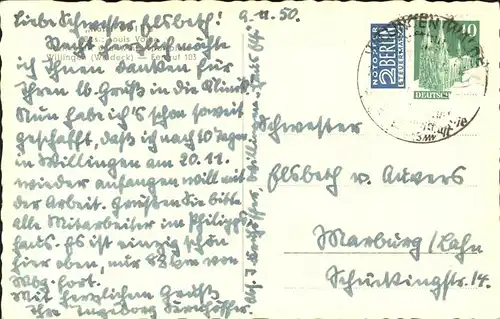 Liebe Schwester Elsbeth!
9.11.50.
Recht herzlich möchte
ich Ihnen danken für
Ihren lb. Gruß in die Klinik.
Willingen (Waldeck) — Fernruf 103
Nun habe ich's schon soweit
geschafft, daß ich nach 10 Tagen
in Willingen am 20.11.
wieder anfangen will mit
der Arbeit. Grüßen Sie bitte
alle Mitarbeiter im Philipps
haus. Es ist einzig schön
hier oben, nur 88 km von
Mbg. fort.
Mit herzlichem Gruß
Ihre Ingeborg
NOTOPFER
2 BERLIN
STEUERMARKE
10
DEUTSCHE
Schwester
Elsbeth v. Auwers
Marburg/Lahn
Schückingstr. 14.